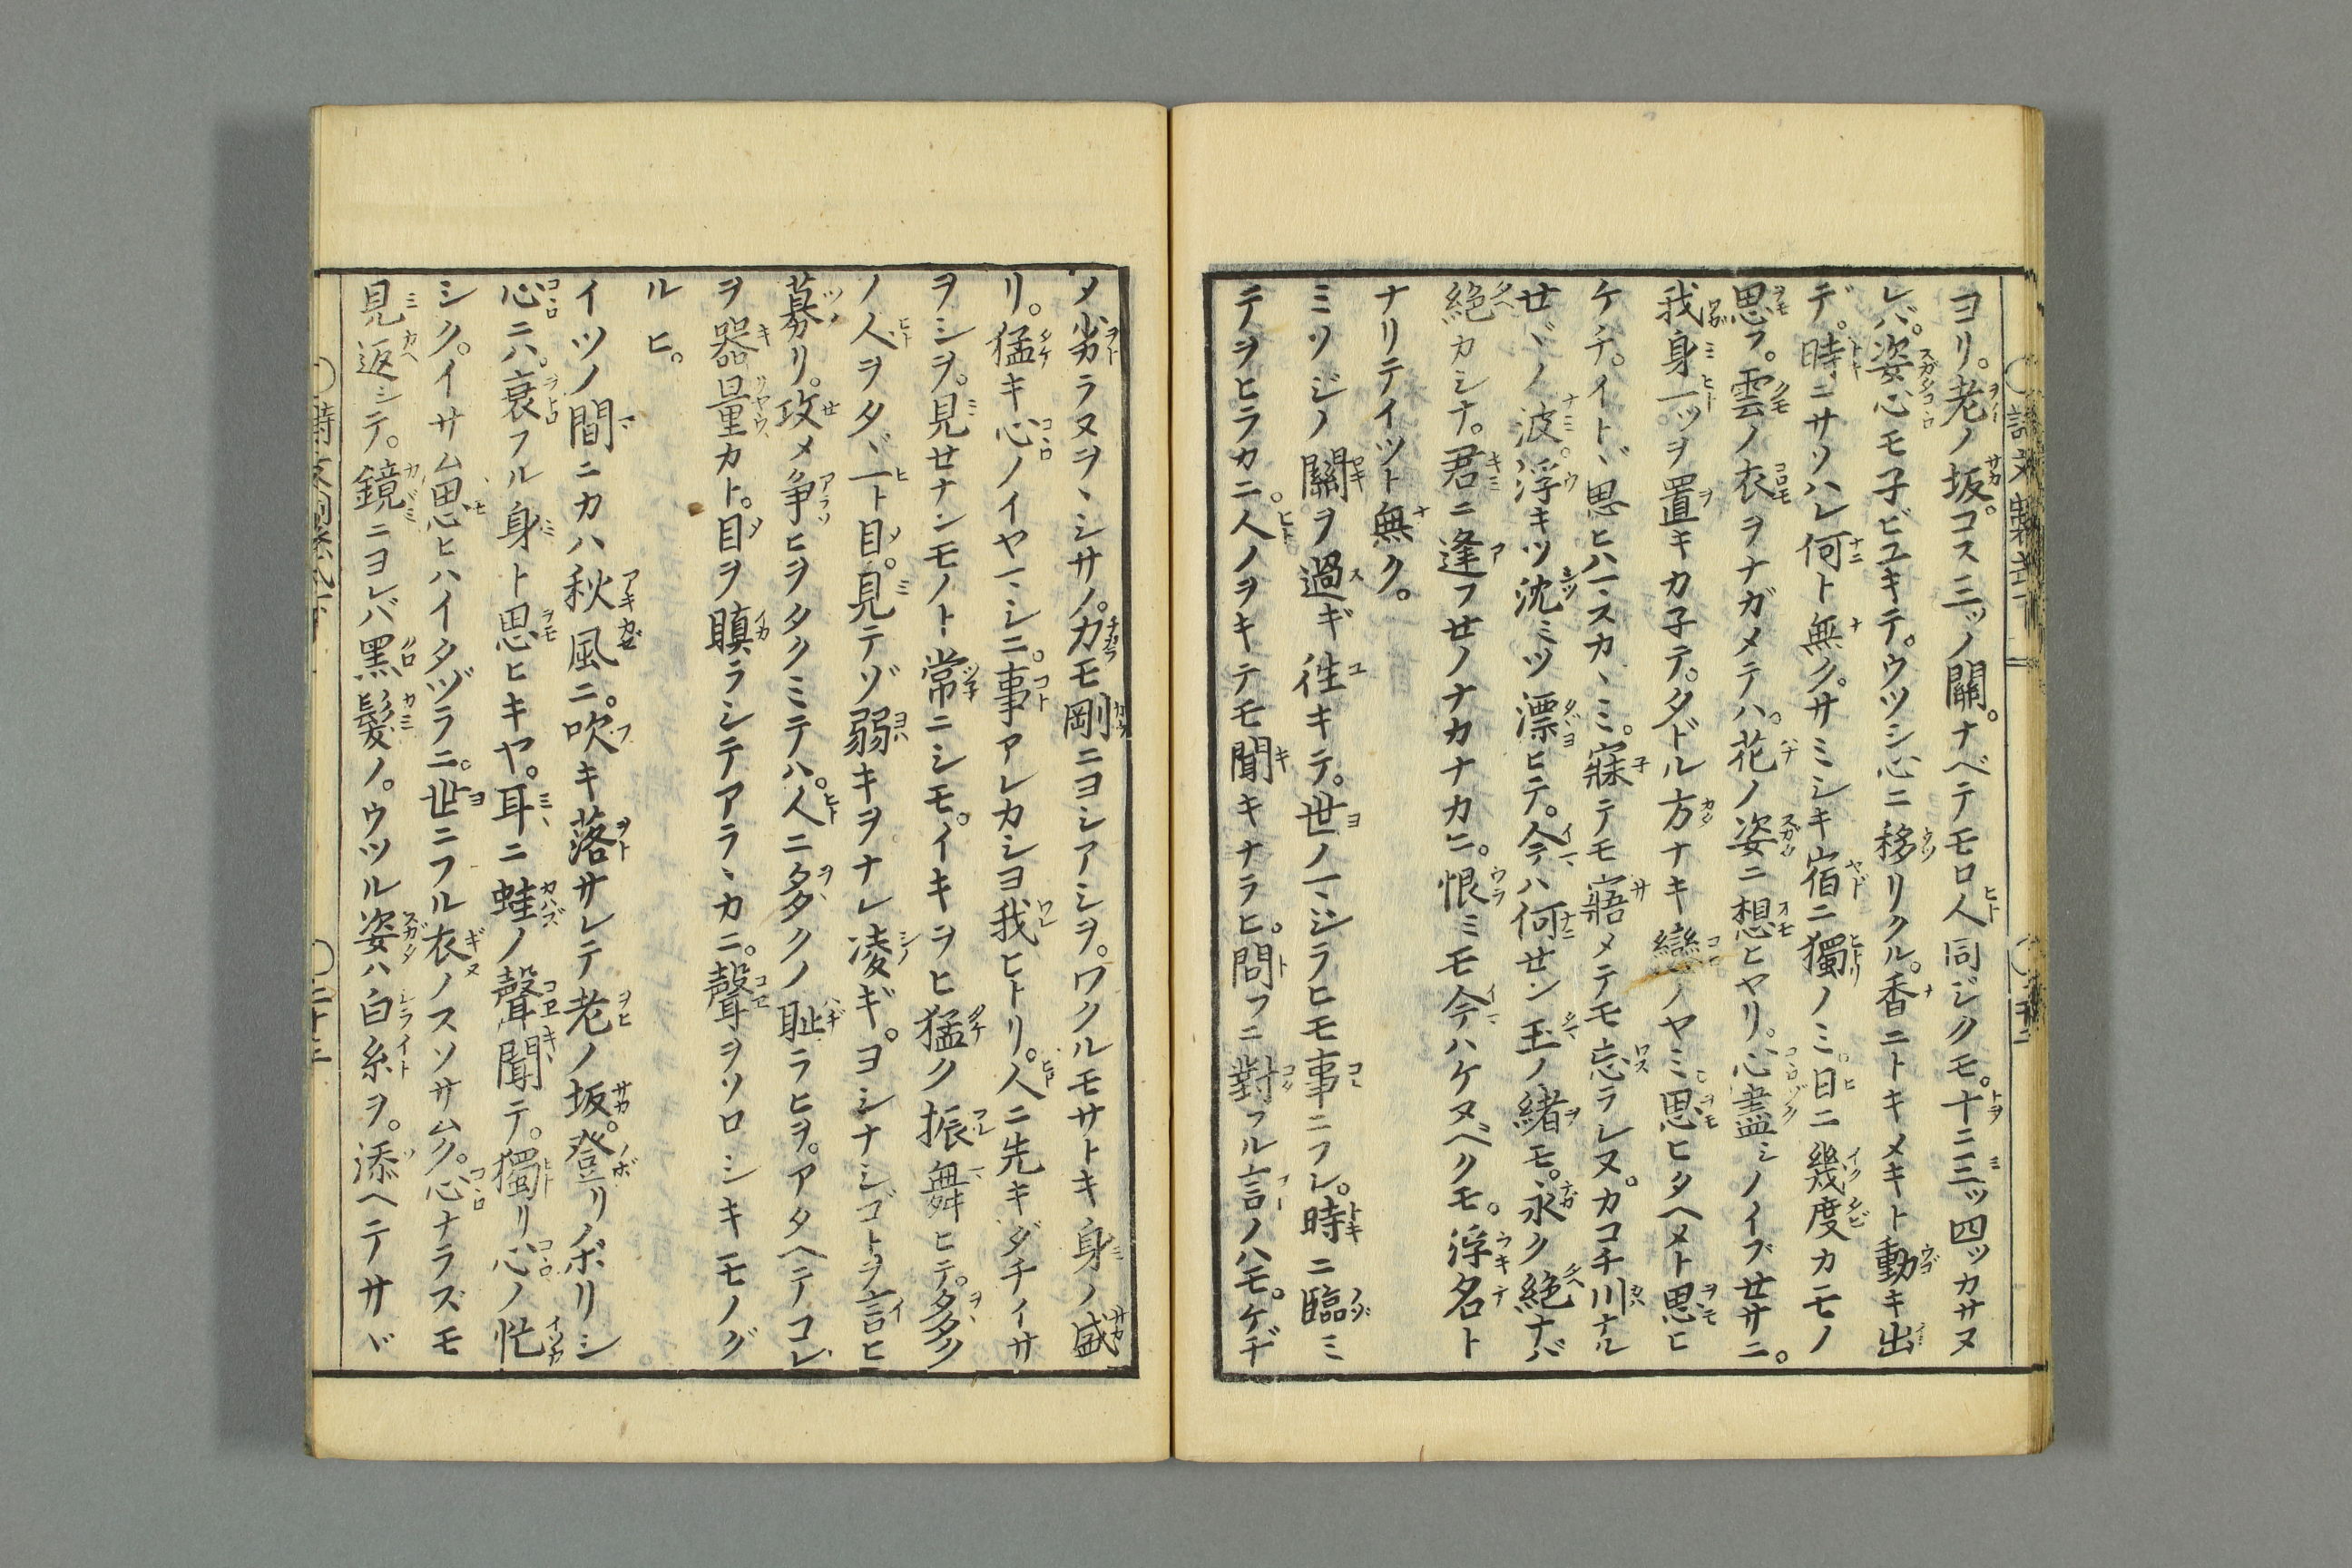 ヨリ。老ノ坂。コス三ツノ關。ナベテモロ人同ジクモ。十ニ三ツ四ツカサヌ
レバ。姿心モ子ビユキテ。ウツシ心ニ移リクル。香ニトキメキト動キ出
デ。時ニサソハレ何ト無ク。サミシキ宿ニ獨ノミ日ニ幾度カモノ
思フ。雲ノ衣ヲナガメテハ。花ノ姿ニ想ヒヤリ。心盡シノイブセサニ。
我身一ツヲ置キカ子テ。タドル方ナキ戀ノヤミ思ヒタヘメト思ヒ
ケチ。イトヾ思ヒハマスカヽミ。寐テモ寤メテモ忘ラレヌ。カコチ川ナル
セヾノ波。浮キツ沈ミツ漂ヒテ。今ハ何セン玉ノ緒モ。永ク絕ナバ
絕カシナ。君ニ逢フセノナカナカニ。恨ミモ今ハケヌベクモ。浮名ト
ナリテイツト無ク。
ミツジノ關ヲ過ギ徃キテ。世ノマジラヒモ事ニフレ。時ニ臨ミ
テヲヒラカニ。人ノヲキテモ聞キナラヒ。問フニ對フル言ノハモ。ケヂ
メ劣ラヌヲヽシサノ。力モ剛ニヨシアシヲ。ワクルモサトキ身ノ盛
リ。猛キ心ノイヤマシニ。事アレカシヨ我ヒトリ。人ニ先キダチイサ
ヲシヲ。見セナンモノト常ニシモ。イキヲヒ猛ク振舞ヒテ。多ク
ノ人ヲタヾ一ト目。見テゾ弱キヲナレ凌ギ。ヨシナシゴトヲ言ヒ
募リ。攻メ争ヒヲタクミテハ。人ニ多クノ耻ラヒヲ。アタヘテコレ
ヲ器量カト。目ヲ瞋ラシテアラヽカニ。聲ヲソロシキモノグ
ルヒ。
イツノ間ニカハ秋風ニ。吹キ落サレテ老ノ坂。登リノボリシ
心ニハ。衰フル身ト思ヒキヤ。耳ニ蛙ノ聲聞テ。獨リ心ノ忙
シク。イサム思ヒハイタヅラニ。世ニフル衣ノスソサムク。心ナラズモ
見返シテ。鏡ニヨレバ黑髮ノ。ウツル姿ハ白糸ヲ。添ヘテサヾ
二十三